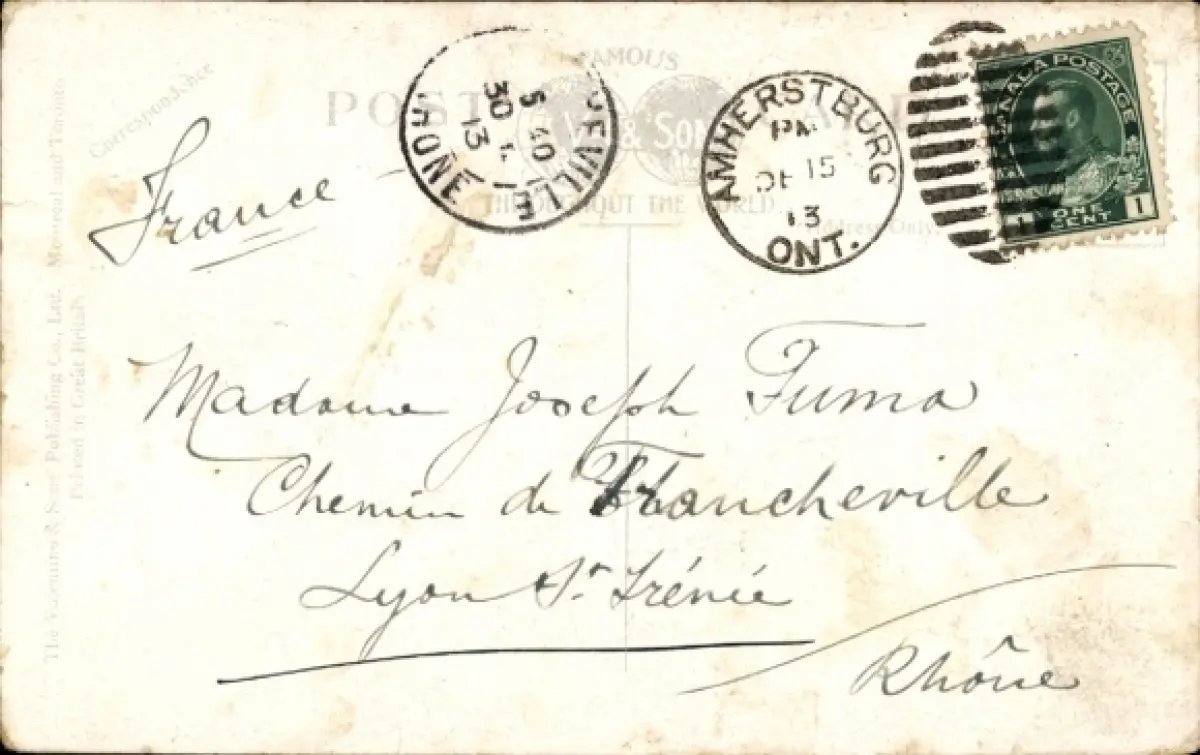 Correspondence
POST
FAMOUS
& SONS
THROUGHOUT THE WORLD
Address Only.
5 40
30
13
RHONE
AMHERSTBURG
PM
DE 15
13
ONT.
CANADA POSTAGE
1 ONE CENT 1
France
Madame Joseph Fuma
Chemin de Francheville
Lyon St. Irénée
Rhône
The Valentine & Sons' Publishing Co., Ltd. Montreal and Toronto
Printed in Great Britain